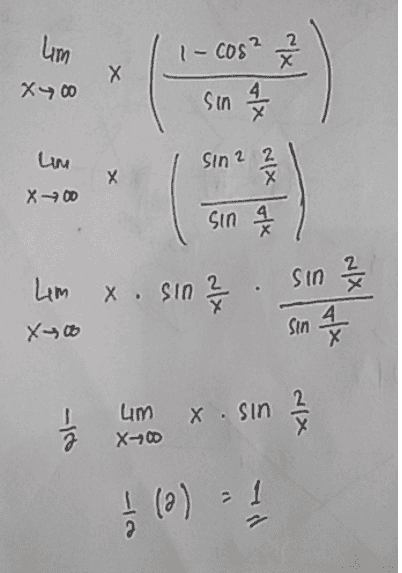 lim x→∞ x ( (1 - cos² 2/x) / (sin 4/x) )
lim x→∞ x ( (sin² 2/x) / (sin 4/x) )
lim x→∞ x . sin 2/x . (sin 2/x) / (sin 4/x)
1/2 lim x→∞ x . sin 2/x
1/2 (2) = 1